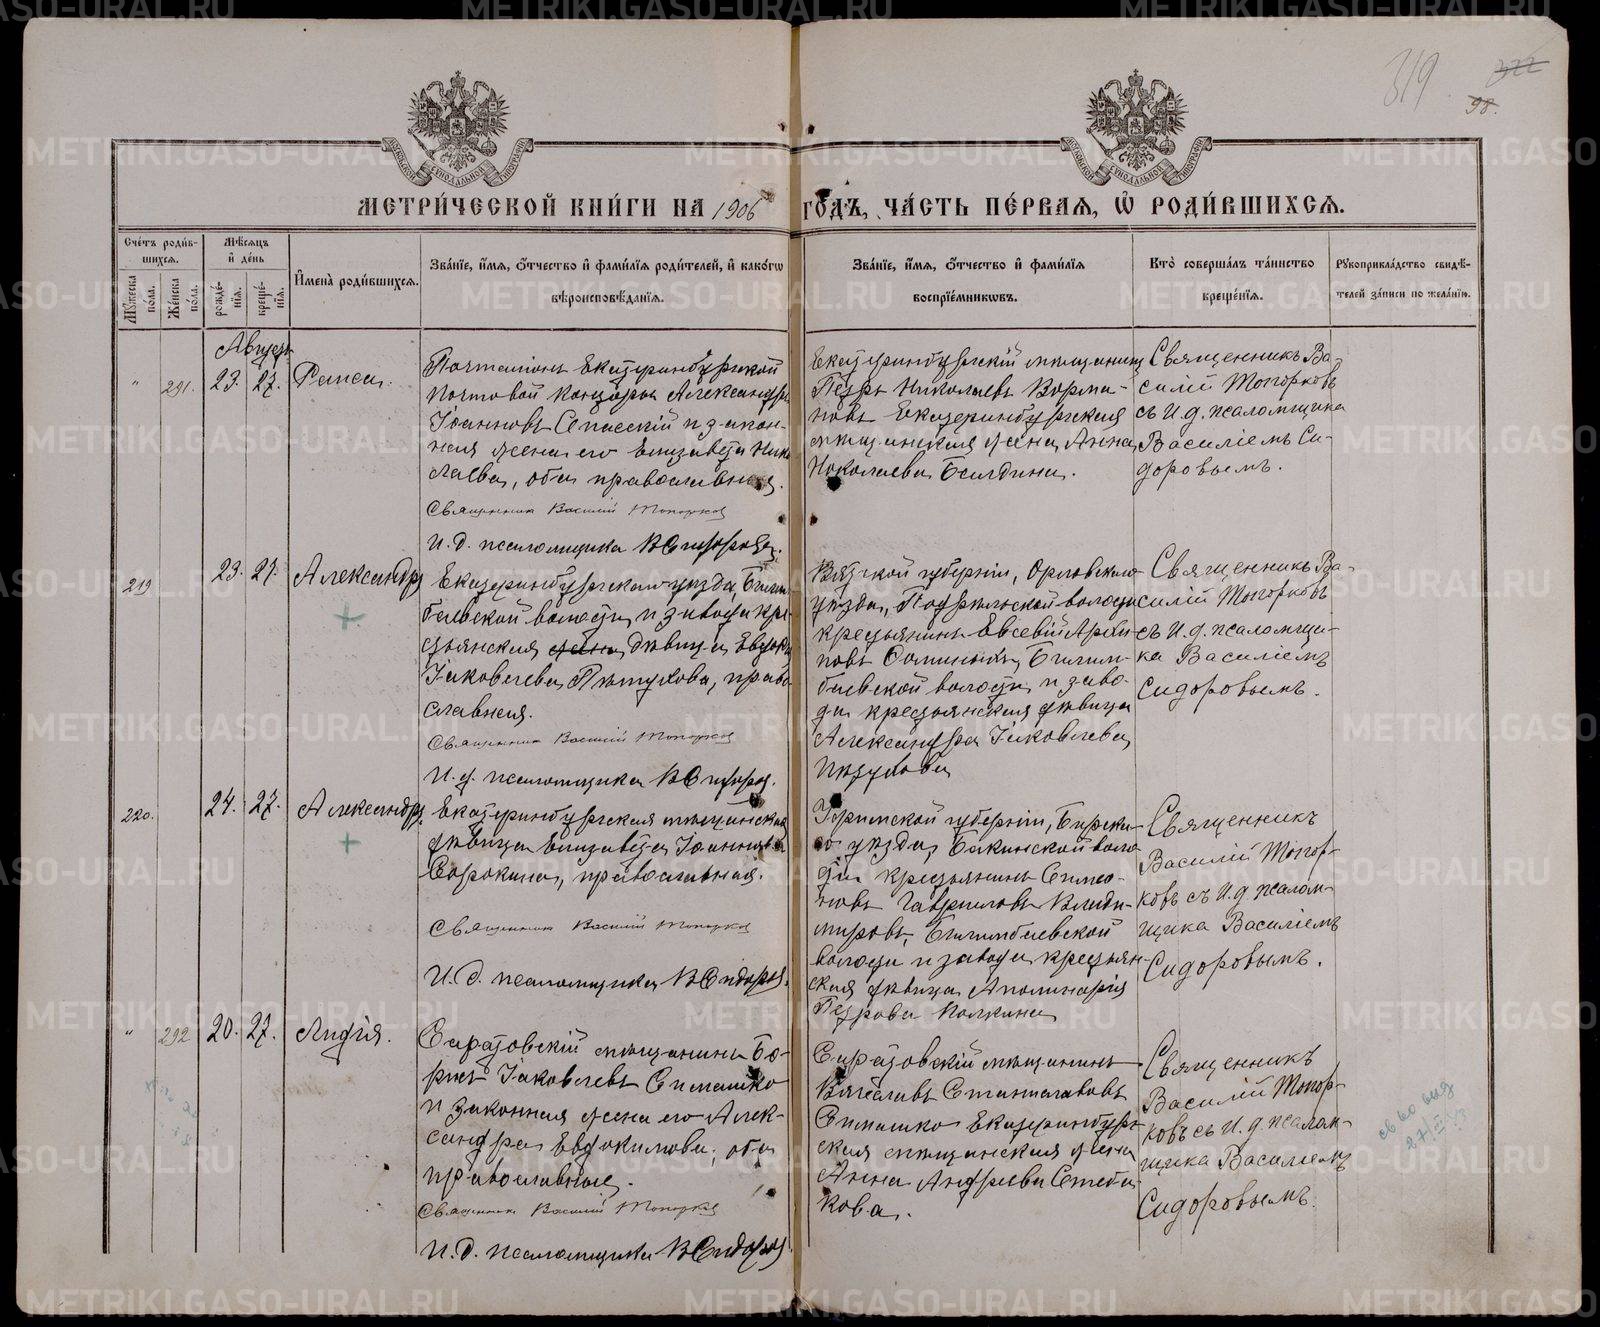 319
322
98.
МЕТРИ́ЧЕСКОЙ КНИ́ГИ НА 1906 ГОДЪ, ЧА́СТЬ ПЕ́РВАЯ, Ѽ РОДИ́ВШИХСЯ.
Сче́тъ роди́в-
шихся.
Мѣсяцъ
и҆ де́нь
Мꙋ́жеска по́ла.
Же́нска по́ла.
рожде́-
нїѧ.
креще́-
нїѧ.
И҆мена̀ роди́вшихся.
Зва́нїе, и҆́мѧ, ѻ҆́тчество и҆ фами́лїѧ роди́телей, и҆ како́гѡ
вѣроисповѣ́данїѧ.
Зва́нїе, и҆́мѧ, ѻ҆́тчество и҆ фами́лїѧ
воспрїе́мникѡвъ.
Кто̀ соверша́лъ та́инство
креще́нїѧ.
Рꙋкоприкла́дство свидѣ́-
телей за́писи по жела́нїю.
Августъ
" 291. 23. 27. Раиса.
Почталіонъ Екатеринбургской
почтовой конторы Александръ
Іоанновъ Спасскій и закон-
ная жена его Елизавета Нико
лаева, оба православные.
Священникъ Василій Топорков
И. д. псаломщика В Сидоров.
Екатеринбургскій мѣщанинъ
Петръ Николаевъ Ворма-
новъ Екатеринбургская
мѣщанская жена Анна
Николаева Балдина.
Священникъ Ва-
силій Топорковъ
съ И. д. псаломщика
Василіемъ Си-
доровымъ.
219 23. 27. Александръ
Екатеринбургскаго уѣзда, Билим
баевской волости и завода кре
стьянская жена дѣвица Евдокія
Іаковлева Пѣтухова, право
славная.
Священникъ Василій Топорков
И. д. псаломщика В Сидоров.
Вятской губерніи, Орловскаго
уѣзда, волости
крестьянинъ Евсевій Архи-
повъ Билим-
баевской волости и заво-
да крестьянская дѣвица
Александра Іаковлева
Пѣтухова
Священникъ Ва-
силій Топорковъ
съ И. д. псаломщи-
ка Василіемъ
Сидоровымъ.
220. 24. 27. Александръ.
Екатеринбургская мѣщанская
дѣвица Елизавета Іоаннова
Сорокина, православная.
Священникъ Василій Топорков
И. д. псаломщика В Сидоров.
Уфимской губерніи, Бирска-
го уѣзда, Бакинской воло
сти крестьянинъ Симео-
новъ Гавриловъ Влади-
мировъ, Билимбаевской
волости и завода крестьян
ская дѣвица Аполинарія
Петрова Палкина
Священникъ
Василій Топор-
ковъ съ И. д. псалом-
щика Василіемъ
Сидоровымъ.
" 292 20. 27. Лидія.
Саратовскій мѣщанинъ Бо-
рисъ Іаковлевъ Симашко
и законная жена его Алек-
сандра Евдокимова, оба
православные.
Священникъ Василій Топорков
И. д. псаломщика В Сидоров
Саратовскій мѣщанинъ
Вячеславъ Станиславовъ
Симашко Екатеринбург
ская мѣщанская жена
Анна Андреева Стеба-
кова.
Священникъ
Василій Топор-
ковъ съ И. д. псалом-
щика Василіемъ
Сидоровымъ.